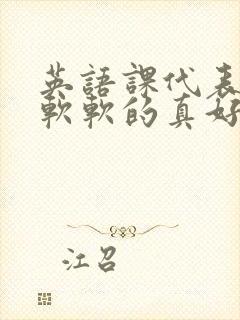 英語課代表
軟軟的真好
江召